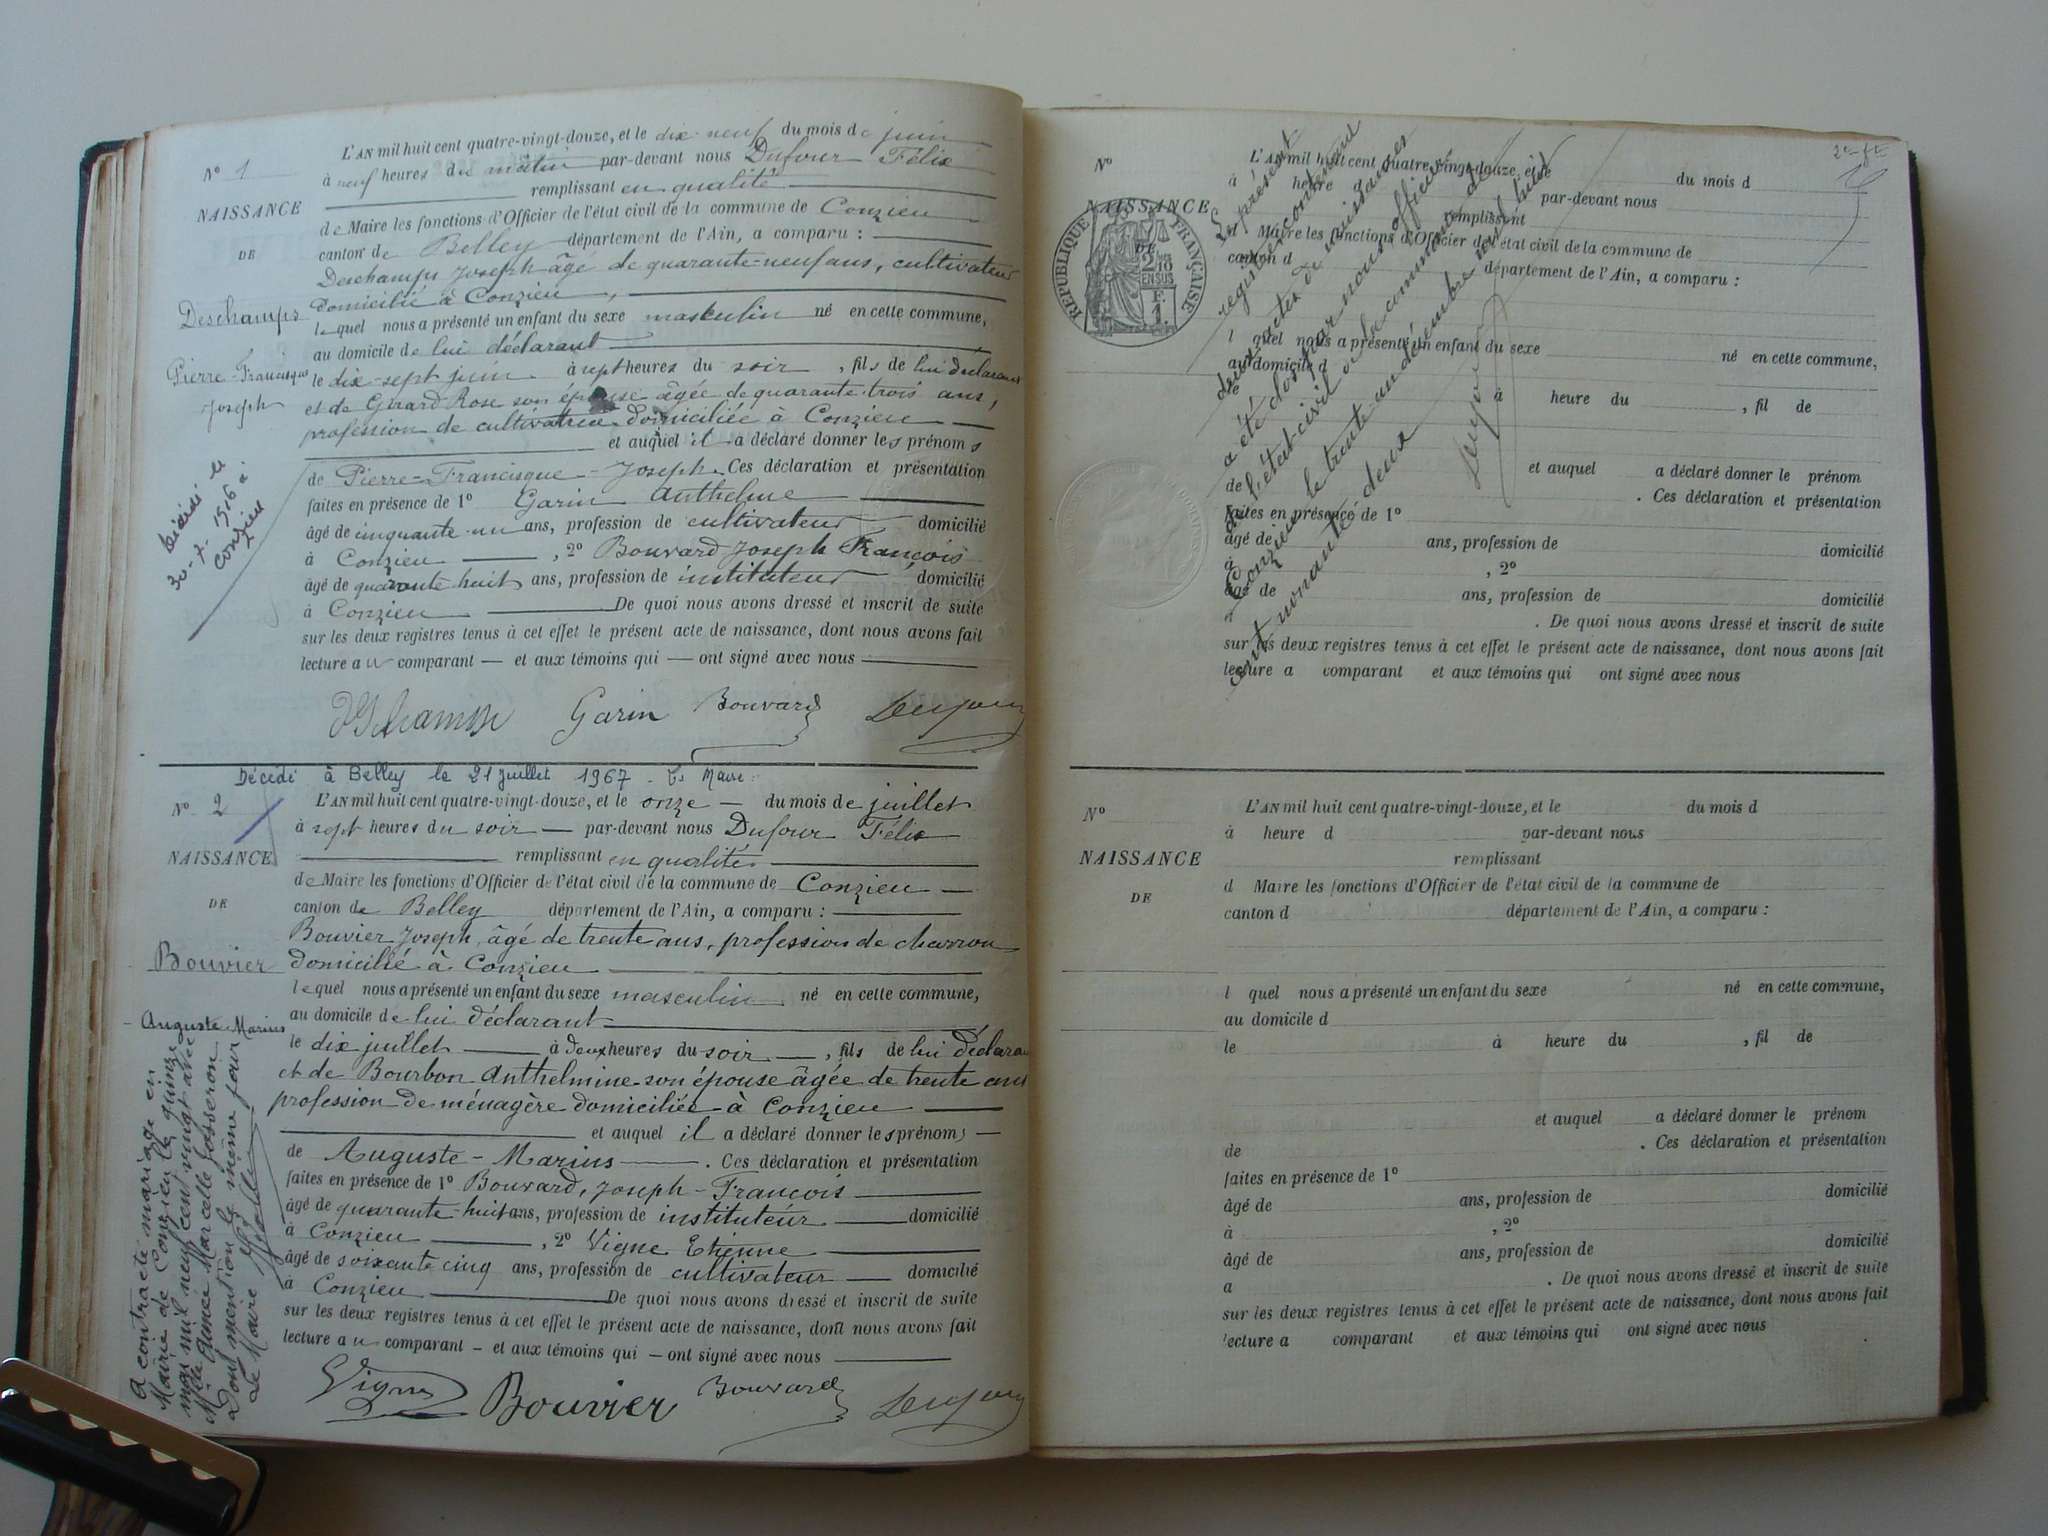 N° 1
NAISSANCE
DE
Deschamps
Pierre-Francisque
Joseph
Décédé le
30-7-1956 à
Conzieu
L'AN mil huit cent quatre-vingt-douze, et le dix-neuf du mois de juin
à neuf heures du matin par-devant nous Dufour Félix
remplissant en qualité
de Maire les fonctions d'Officier de l'état civil de la commune de Conzieu
canton de Belley département de l'Ain, a comparu :
Deschamps Joseph âgé de quarante-neuf ans, cultivateur
domicilié à Conzieu,
lequel nous a présenté un enfant du sexe masculin né en cette commune,
au domicile de lui déclarant
le dix-sept juin à sept heures du soir, fils de lui déclarant
et de Girard Rose son épouse âgée de quarante-trois ans,
profession de cultivatrice domiciliée à Conzieu
et auquel il a déclaré donner les prénoms
de Pierre-Francisque-Joseph. Ces déclaration et présentation
faites en présence de 1° Garin Anthelme
âgé de cinquante-un ans, profession de cultivateur domicilié
à Conzieu, 2° Bouvard Joseph François
âgé de quarante huit ans, profession de instituteur domicilié
à Conzieu De quoi nous avons dressé et inscrit de suite
sur les deux registres tenus à cet effet le présent acte de naissance, dont nous avons fait
lecture au comparant — et aux témoins qui — ont signé avec nous
Garin Bouvard
Décédé à Belley le 21 juillet 1967 - Le Maire
N° 2
NAISSANCE
DE
Bouvier
Auguste-Marius
A contracté mariage en
Mairie de Conzieu le quinze
mai mil neuf cent vingt avec
Mlle Aimée Marcelle
Dont mention le même jour
Le Maire
L'AN mil huit cent quatre-vingt-douze, et le onze — du mois de juillet
à sept heures du soir — par-devant nous Dufour Félix
remplissant en qualité
de Maire les fonctions d'Officier de l'état civil de la commune de Conzieu —
canton de Belley département de l'Ain, a comparu :
Bouvier Joseph, âgé de trente ans, profession de charron
domicilié à Conzieu
lequel nous a présenté un enfant du sexe masculin né en cette commune,
au domicile de lui déclarant
le dix juillet — à deux heures du soir —, fils de lui déclarant
et de Bourbon Anthelmine son épouse âgée de trente ans
profession de ménagère domiciliée à Conzieu
et auquel il a déclaré donner les prénoms —
de Auguste-Marius —. Ces déclaration et présentation
faites en présence de 1° Bouvard, Joseph-François
âgé de quarante-huit ans, profession de instituteur domicilié
à Conzieu, 2° Vigne Etienne
âgé de soixante cinq ans, profession de cultivateur — domicilié
à Conzieu De quoi nous avons dressé et inscrit de suite
sur les deux registres tenus à cet effet le présent acte de naissance, dont nous avons fait
lecture au comparant — et aux témoins qui — ont signé avec nous
Vigne Bouvier Bouvard
N°
NAISSANCE
DE
REPUBLIQUE FRANÇAISE
L'AN mil huit cent quatre-vingt-douze, et le du mois d
à heure d par-devant nous
remplissant
d Maire les fonctions d'Officier de l'état civil de la commune de
canton d département de l'Ain, a comparu :
l quel nous a présenté un enfant du sexe né en cette commune,
au domicile d
le à heure du , fil de
et auquel a déclaré donner le prénom
de . Ces déclaration et présentation
faites en présence de 1°
âgé de ans, profession de domicilié
à , 2°
âgé de ans, profession de domicilié
à . De quoi nous avons dressé et inscrit de suite
sur les deux registres tenus à cet effet le présent acte de naissance, dont nous avons fait
lecture a comparant et aux témoins qui ont signé avec nous
Le présent
registre contenant
deux actes de naissances
a été clos par nous officier
de l'état-civil de la commune de
Conzieu le trente un décembre mil huit
cent nonante deux
N°
NAISSANCE
DE
L'AN mil huit cent quatre-vingt-douze, et le du mois d
à heure d par-devant nous
remplissant
d Maire les fonctions d'Officier de l'état civil de la commune de
canton d département de l'Ain, a comparu :
l quel nous a présenté un enfant du sexe né en cette commune,
au domicile d
le à heure du , fil de
et auquel a déclaré donner le prénom
de . Ces déclaration et présentation
faites en présence de 1°
âgé de ans, profession de domicilié
à , 2°
âgé de ans, profession de domicilié
a . De quoi nous avons dressé et inscrit de suite
sur les deux registres tenus à cet effet le présent acte de naissance, dont nous avons fait
lecture a comparant et aux témoins qui ont signé avec nous